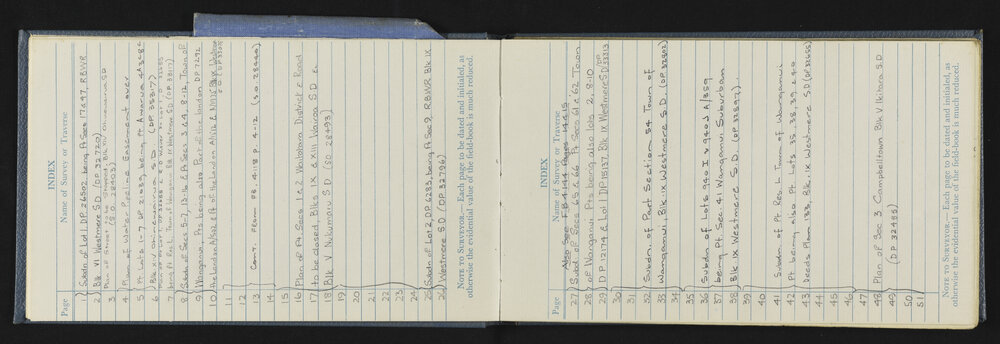 INDEX
Page Name of Survey or Traverse
1 Subdn of Lot 1, DP 26502 being Pt Secs 17 & 47, RBWR
2 Blk VI Westmere S D (DP 32720)
3 Plan of Street to be Stopped Blk XV Ohinewairua SD
(S.O. 28403)
4 Plan of Water Pipeline Easement over
5 Pt Lots 1-7 DP 21089, being Pt
6 (Blk XV S D (DP 35317)
7
8 Subdn of Secs 5-7, 13-16 & Pt Secs 3 & 4, 8-12, Town of
9 Wanganui, Pts being also Part of the Landon DP 7292
10
11
12
13 Cont. From F.B. 4118 P. 4-12 (S.O. 28440)
14
15
16 Plan of Pt Secs 1 & 2 District & Road
17 to be closed, Blks IX & XIII Wairoa S D &
18 Blk V Nukumaru S D (SO 28493)
19
20
21
22
23
24
25 Subdn of Lot 2, DP 6283, being Pt Sec 9 RBWR Blk IX
26 Westmere S D (DP 32796)
NOTE TO SURVEYOR.—Each page to be dated and initialed, as
otherwise the evidential value of the field-book is much reduced.
INDEX
Page Name of Survey or Traverse
Also See FB 4144 Pages 14 & 15
27 Subd. of Secs 65 & 66 Pt Secs 61 & 62 Town
28 of Wanganui Pts being also Lots 2, 8-10
29 DP 12174 & Lot 1 DP 15137, Blk IX Westmere SD (DP 33313)
30
31
32 Subdn. of Part Section 54 Town of
33 Wanganui, Blk IX Westmere S.D. (DP 32802)
34
35
36 Subdn of Lots 940 I & 940 J A/359
37 being Pt. Sec 41 Wanganui Suburban
38 Blk IX Westmere S.D. (DP 32897)
39
40
41 Subdn. of Pt Res. L Town of Wanganui
42 Pt being also Pt Lots 35, 38, 39 & 40
43 Deeds Plan 133, Blk. IX Westmere S.D (DP 32655)
44
45
46
47
48 Plan of Sec 3 Campbelltown Blk V Ikitara S.D
49 (DP 32485)
50
51
NOTE TO SURVEYOR.—Each page to be dated and initialed, as
otherwise the evidential value of the field-book is much reduced.